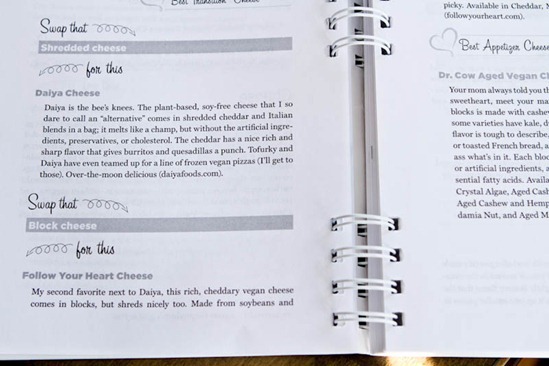 Best Transition Cheese
Swap that
Shredded cheese
for this
Daiya Cheese
Daiya is the bee's knees. The plant-based, soy-free cheese that I so
dare to call an "alternative" comes in shredded cheddar and Italian
blends in a bag; it melts like a champ, but without the artificial ingre-
dients, preservatives, or cholesterol. The cheddar has a nice rich and
sharp flavor that gives burritos and quesadillas a punch. Tofurky and
Daiya have even teamed up for a line of frozen vegan pizzas (I'll get to
those). Over-the-moon delicious (daiyafoods.com).
Swap that
Block cheese
for this
Follow Your Heart Cheese
My second favorite next to Daiya, this rich, cheddary vegan cheese
comes in blocks, but shreds nicely too. Made from soybeans and
picky. Available in Cheddar,
(followyourheart.com).
Best Appetizer Cheese
Dr. Cow Aged Vegan
Your mom always told you th
sweetheart, meet your ma
blocks is made with cashe
some varieties have kale, d
flavor is tough to describe,
or toasted French bread, a
ass what's in it. Each bloc
or artificial ingredients, a
sential fatty acids. Availa
Crystal Algae, Aged Cash
Aged Cashew and Hemp
damia Nut, and Aged M